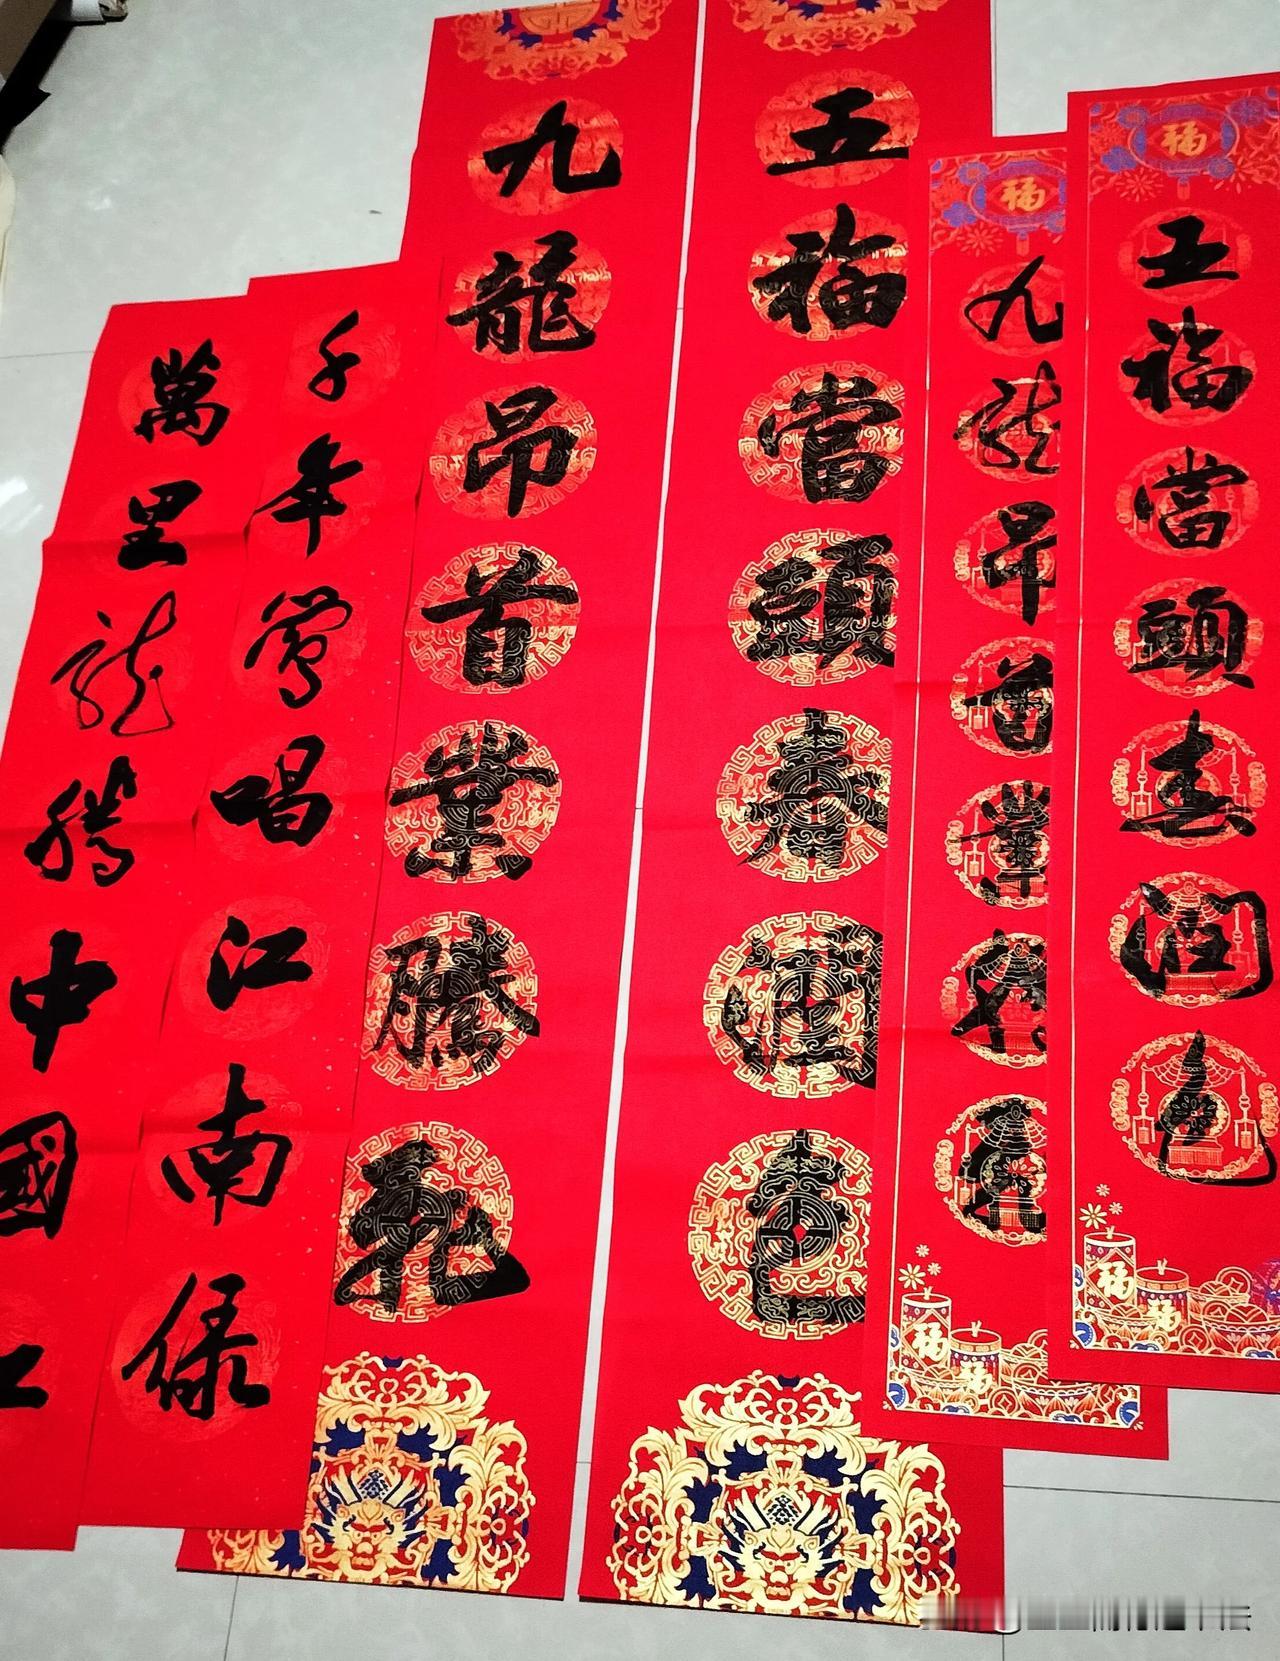 五福當頭春潤色
九龍昂首業騰飛
五福當頭春潤色
九龍昂首業騰飛
千年鶯唱江南绿
萬里龍騰中國
福
福
福
福
福
福